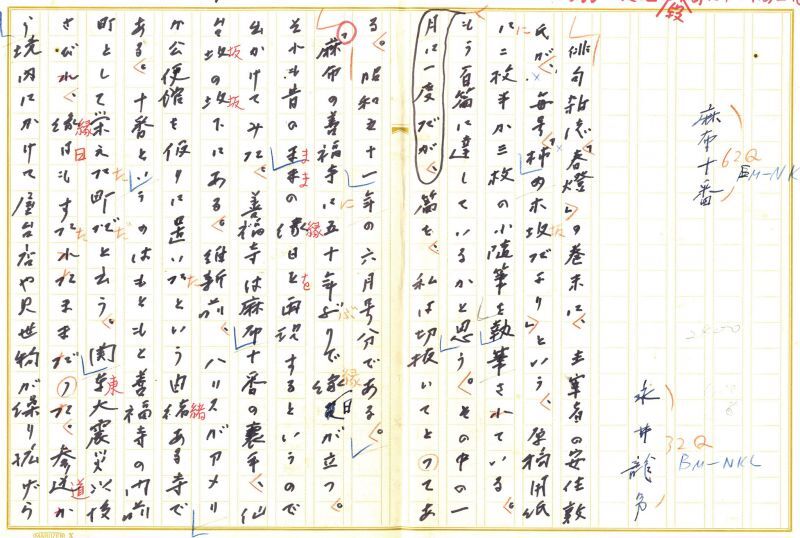 麻布十番
永井龍男
俳句雑誌「春燈」の巻末に、主宰者の安住敦
氏が、毎号「柿の木坂だより」という、原稿用紙
に二枚半か三枚の小随筆を執筆されている。
もう百篇に達しているかと思う。その中の一
月に一度だが、篇を、私は切抜いてとってあ
る。昭和五十一年の六月号分である。
「麻布の善福寺に五十年ぶりで縁日が立つ。
それも昔のままの縁日を再現するというので
出かけてみた。善福寺は麻布十番の裏手、仙
台坂の坂下にある。維新前、ハリスがアメリ
カ公使館を仮りに置いたという由緒ある寺で
ある。十番というのはもともと善福寺の門前
町として栄えた町だと云う。関東大震災以後
さびれ、縁日はもすたれたままだった。参道か
ら境内にかけて屋台店や見世物が繰り拡げら